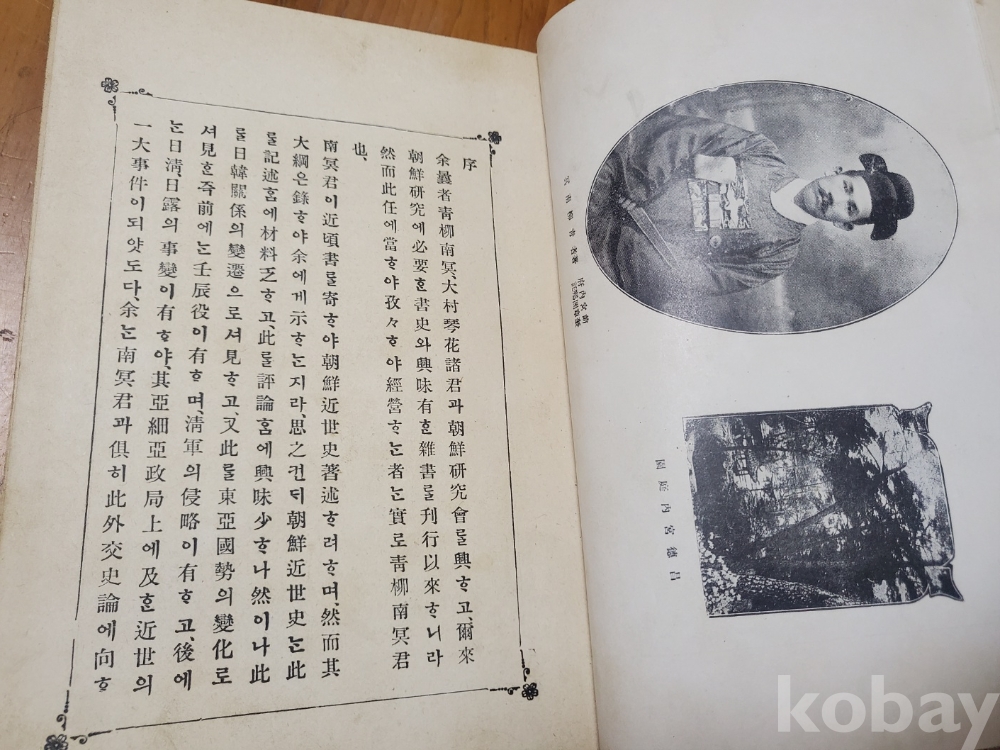 序
余曩者靑柳南冥、大村琴花諸君과朝鮮硏究會ᄅᆞᆯ興ᄒᆞ고、爾來
朝鮮硏究에必要ᄒᆞᆫ書史와興味有ᄒᆞᆫ雜書ᄅᆞᆯ刊行以來ᄒᆞ니라
然而此任에當ᄒᆞ야孜々ᄒᆞ야經營ᄒᆞᄂᆞᆫ者ᄂᆞᆫ實로靑柳南冥君
也、
南冥君이近頃書ᄅᆞᆯ寄ᄒᆞ야朝鮮近世史著述ᄒᆞ려ᄒᆞ며、然而其
大綱은錄ᄒᆞ야余에게示ᄒᆞᄂᆞᆫ지라、思之컨ᄃᆡ朝鮮近世史ᄂᆞᆫ此
ᄅᆞᆯ記述ᄒᆞᆷ에材料乏ᄒᆞ고、此ᄅᆞᆯ評論ᄒᆞᆷ에興味少ᄒᆞ나然이나此
ᄅᆞᆯ日韓關係의變遷으로셔見ᄒᆞ고、又此ᄅᆞᆯ東亞國勢의變化로
셔見ᄒᆞᆫ즉前에ᄂᆞᆫ壬辰役이有ᄒᆞ며、淸軍의侵略이有ᄒᆞ고、後에
ᄂᆞᆫ日淸、日露의事變이有ᄒᆞ야、其亞細亞政局上에及ᄒᆞᆫ近世의
一大事件이되얏도다、余ᄂᆞᆫ南冥君과俱히此外交史論에向ᄒᆞ
昌德宮內庭園
kobay